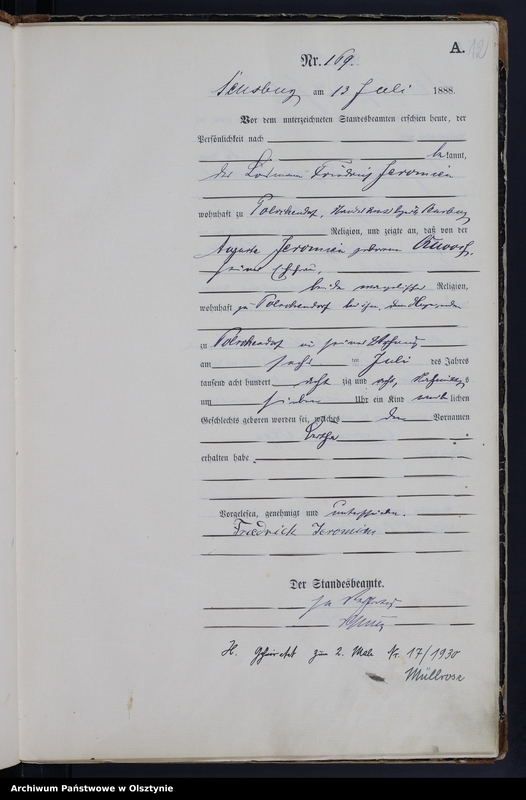 A. 121
Nr. 169.
Sensburg am 13 Juli 1888.
Vor dem unterzeichneten Standesbeamten erschien heute, der
Persönlichkeit nach
bekannt,
der Losmann Friedrich Jeromin
wohnhaft zu Polschendorf,
Religion, und zeigte an, daß von der
Auguste Jeromin geborenen
seiner Ehefrau,
beide evangelischer Religion,
wohnhaft zu Polschendorf bei ihm,
zu Polschendorf in seiner Wohnung
am sechs ten Juli des Jahres
tausend acht hundert acht zig und acht, Nachmittags
um sieben Uhr ein Kind weib lichen
Geschlechts geboren worden sei, welches den Vornamen
Bertha
erhalten habe
Vorgelesen, genehmigt und unterschrieben.
Friedrich Jeromin
Der Standesbeamte.
H. Geheiratet zum 2. Male Nr. 17/1930
Müllrose
Archiwum Państwowe w Olsztynie